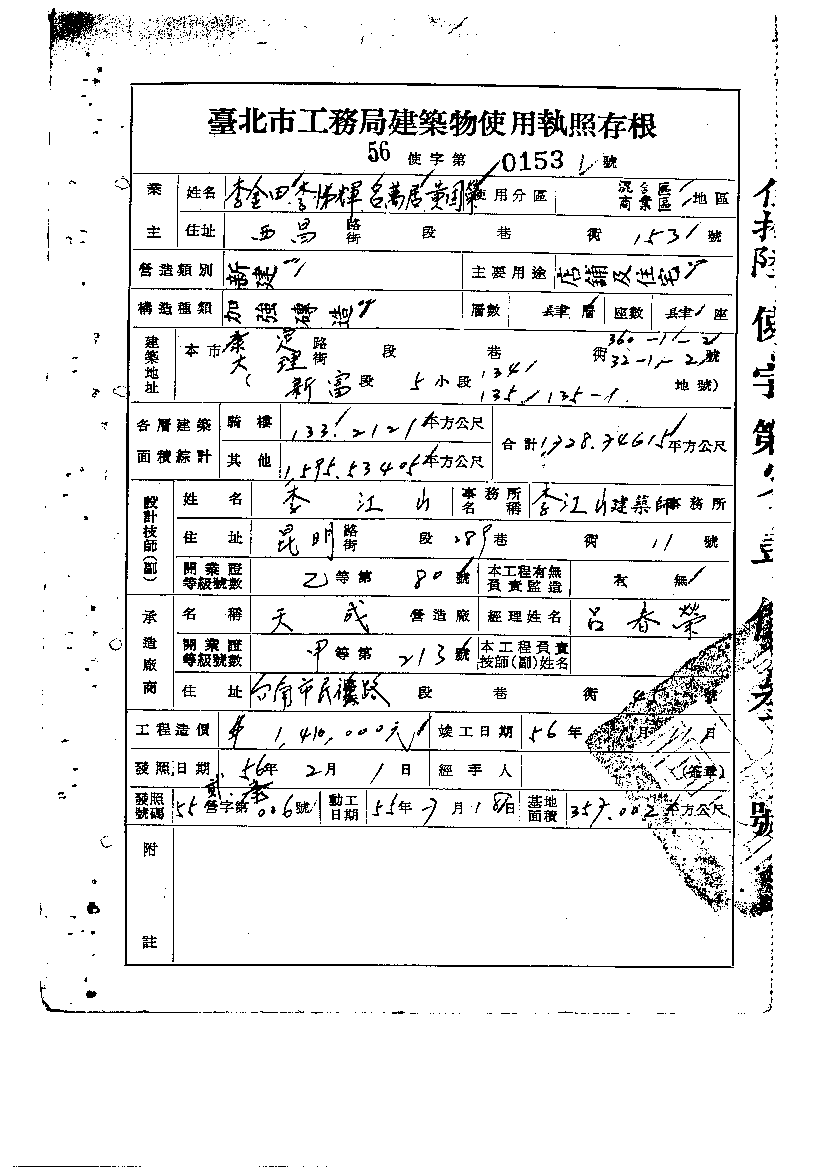 臺北市工務局建築物使用執照存根
56 使字第 0153 號
業主 姓名 李金田 李 輝 呂萬居 黃 使用分區 混合區 商業區 地區
住址 西昌 路街 段 巷 衖 153 號
營造類別 新建 主要用途 店鋪及住宅
構造種類 加強磚造 層數 肆層 座數 肆座
建築地址 本市 康定 大理 路街 段 巷 衖 360-1-2 32-1-2 號
( 新富段 5 小段 134 135 135-1 地號)
各層建築面積綜計 騎樓 133.2121 平方公尺 合計 1,728.74615 平方公尺
其他 1,595.53405 平方公尺
設計技師(副) 姓名 李江山 事務所名稱 李江山建築師事務所
住址 昆明 路街 段 289 巷 衖 11 號
開業證等級號數 乙等第 80 號 本工程有無負責監造 有 無
承造廠商 名稱 天成 營造廠 經理姓名 呂春榮
開業證等級號數 甲等第 213 號 本工程負責技師(副)姓名
住址 台南市民權路 段 巷 衖 45 號
工程造價 1,410,000元 竣工日期 56 年 月 日
發照日期 56年 2月 1日 經手人 (簽章)
發照號碼 55 營字第 006 號 動工日期 55年 7月18日 基地面積 357.002 平方公尺
附註
使字第 號